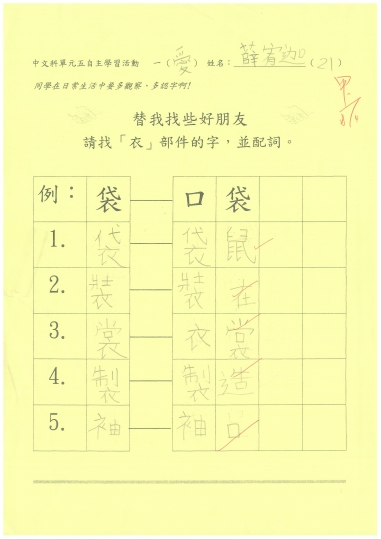 中文科單元五自主學習活動　一（愛）姓名：薛宥迦（21）
同學在日常生活中要多觀察，多認字啊!
甲
替我找些好朋友
請找「衣」部件的字，並配詞。
例： 袋 —— 口袋
1. 袋 —— 袋鼠
2. 裝 —— 裝在
3. 裳 —— 衣裳
4. 製 —— 製造
5. 袖 —— 袖口